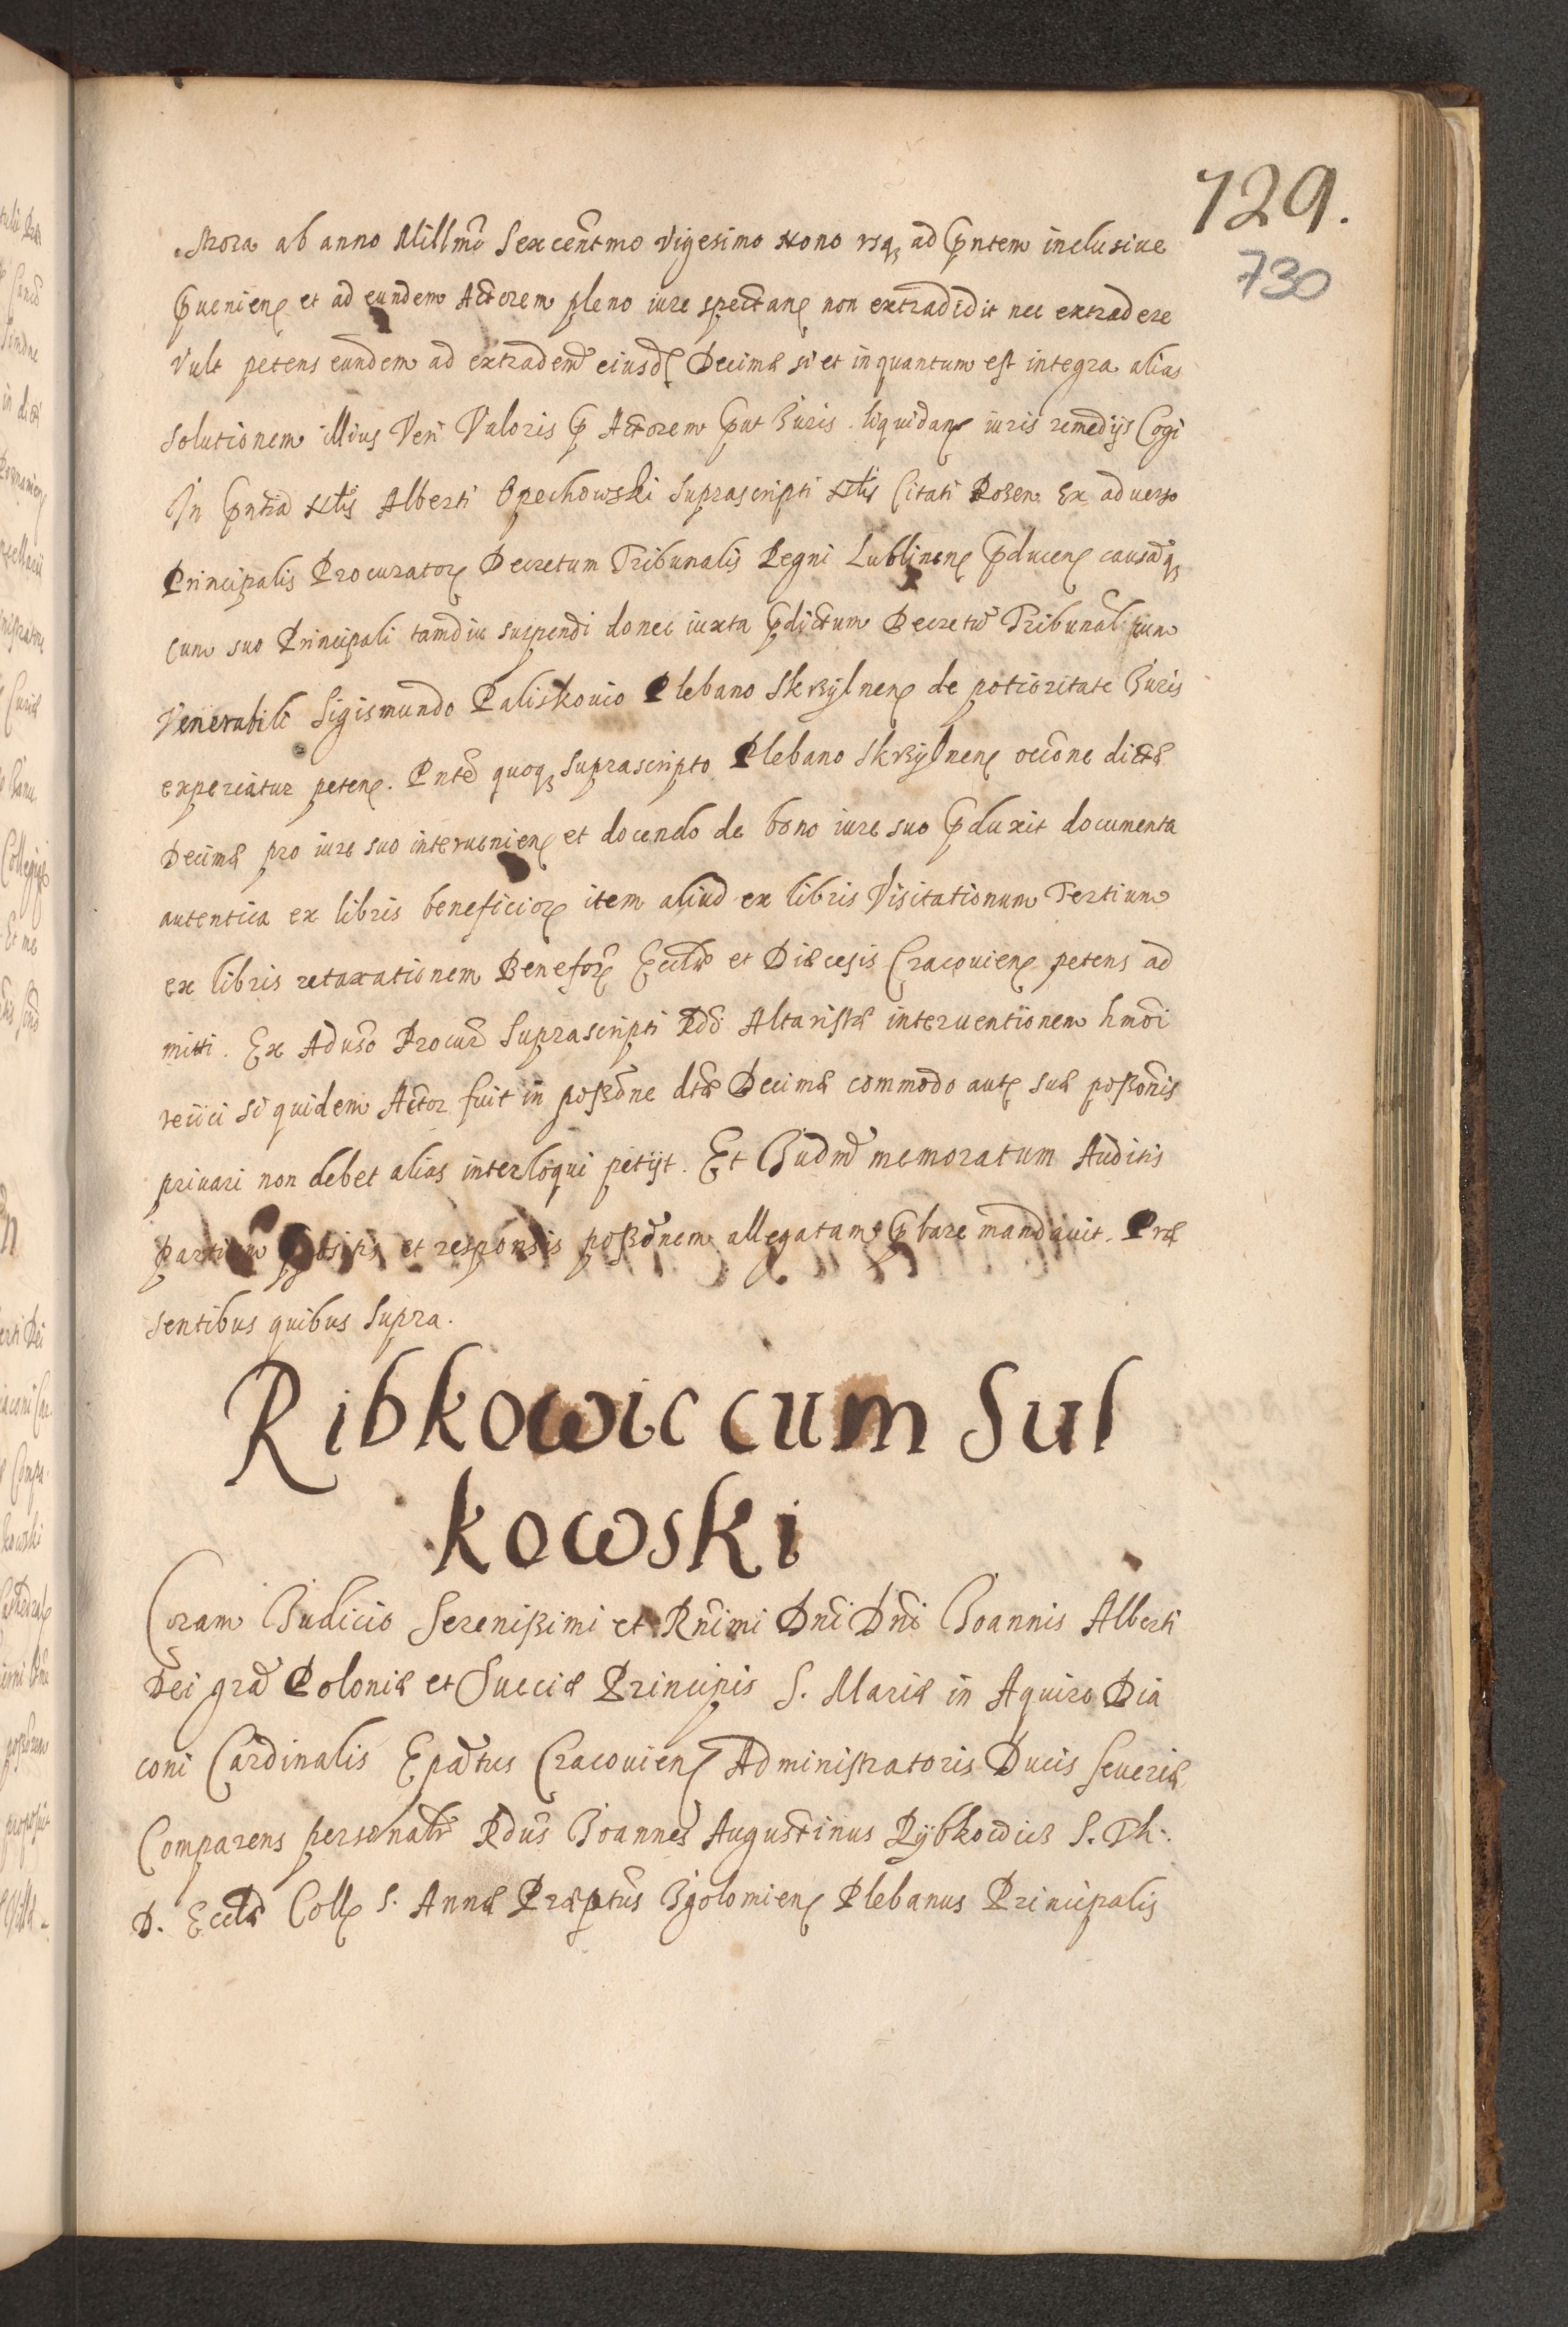 729.
730
Nora ab anno Millmo Sexcentmo Vigesimo Nono usq ad pntem inclusiue
puenien et ad eundem Actorem pleno iure spectan non extradidit nec extradere
Vult petens eundem ad extradem eiusd Decimæ si et inquantum est integra alias
solutionem illius Veri Valoris p Actorem put Juris liquidan iuris remedijs Cogi
In pntia Nlis Alberti Opechowski suprascripti Nlis Citati Ex aduerso
Principalis Procurator Decretum Tribunalis Regni Lublinen pducen causaq
cum suo Principali tamdiu suspendi donec iuxta pdictum Decretu Tribunal cum
Venerabili Sigismundo Paliskouio Plebano Skrzylnen de potioritate Juris
experiatur peten. Pnte quoq suprascripto Plebano Skrzylnen occone dictæ
Decimæ pro iure suo interuenien et docendo de bono iure suo pduxit documenta
autentica ex libris beneficior item aliud ex libris Visitationum Tertium
ex libris retaxationem Benefor Eccliæ et Diæcesis Cracouien petens ad
mitti. Ex Aduso Procur Suprascripti Rdi Altaristæ interuentionem hmoi
reiici si quidem Actor fuit in possone dtæ Decimæ commodo aut suæ possonis
priuari non debet alias interloqui petijt. Et Judm memoratum Auditis
partium ppositis et responsis possonem allegatam pbare mandauit. Præ
sentibus quibus supra.
Ribkowic cum Sul
kowski
Coram Judicio Serenissimi et Rnimi Dni Dni Joannis Alberti
Dei gra Poloniæ et Sueciæ Principis S. Mariæ in Aquiro Dia
coni Cardinalis Epatus Cracouien Administratoris Ducis Seueriæ
Comparens personalr Rdus Joannes Augustinus Rybkowicz S. Th:
D. Eccliæ Coll S. Annæ Præptus Igolomien Plebanus Principalis